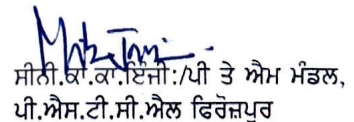 ਸੀਨੀ.ਕਾ.ਕਾ.ਇੰਜੀ:/ਪੀ ਤੇ ਐਮ ਮੰਡਲ,
ਪੀ.ਐਸ.ਟੀ.ਸੀ.ਐਲ ਫਿਰੋਜ਼ਪੁਰ